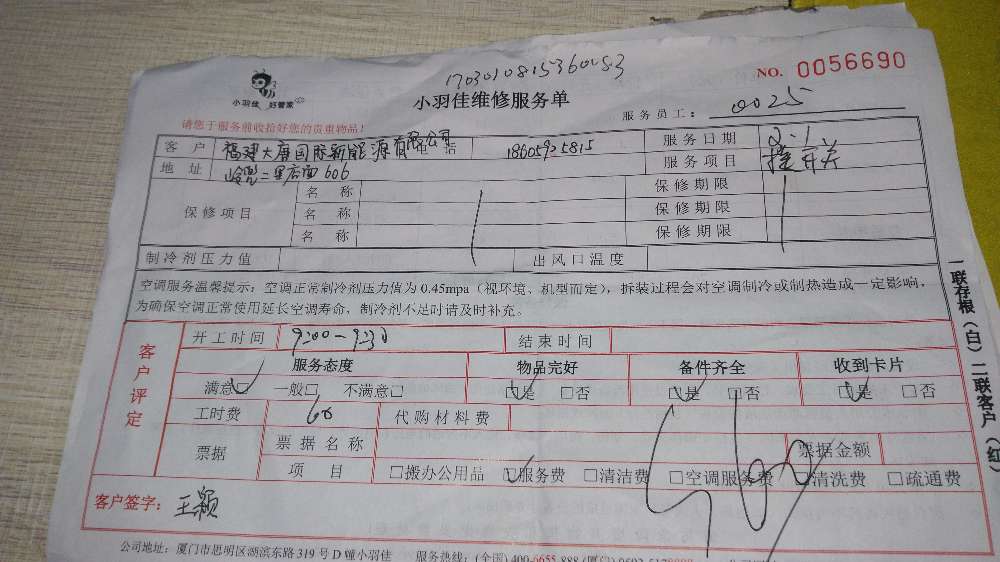 1703010815360083
NO. 0056690
小羽佳 好管家
小羽佳维修服务单
服务员工: 0025
请您于服务前收拾好您的贵重物品!
客 户 福建大唐国际新能源有限公司 电 话 18605925815 服务日期 2.1
地 址 店面606 服务项目 开关
保修项目 名 称 保修期限
名 称 保修期限
名 称 保修期限
制冷剂压力值 出风口温度
空调服务温馨提示: 空调正常制冷剂压力值为 0.45mpa (视环境、机型而定), 拆装过程会对空调制冷或制热造成一定影响,
为确保空调正常使用延长空调寿命, 制冷剂不足时请及时补充。
客户评定
开工时间 9:00-9:30 结束时间
服务态度 物品完好 备件齐全 收到卡片
满意□ 一般□ 不满意□ □是 □否 □是 □否 □是 □否
工时费 60 代购材料费
票据 票据名称 票据金额
项 目 □搬办公用品 □服务费 □清洁费 □空调服务费 □清洗费 □疏通费
¥60
客户签字: 王颖
公司地址: 厦门市思明区湖滨东路 319 号 D 幢小羽佳 服务热线: (全国) 400-6655-888 (厦门) 0592-
一联存根(白) 二联客户(红)